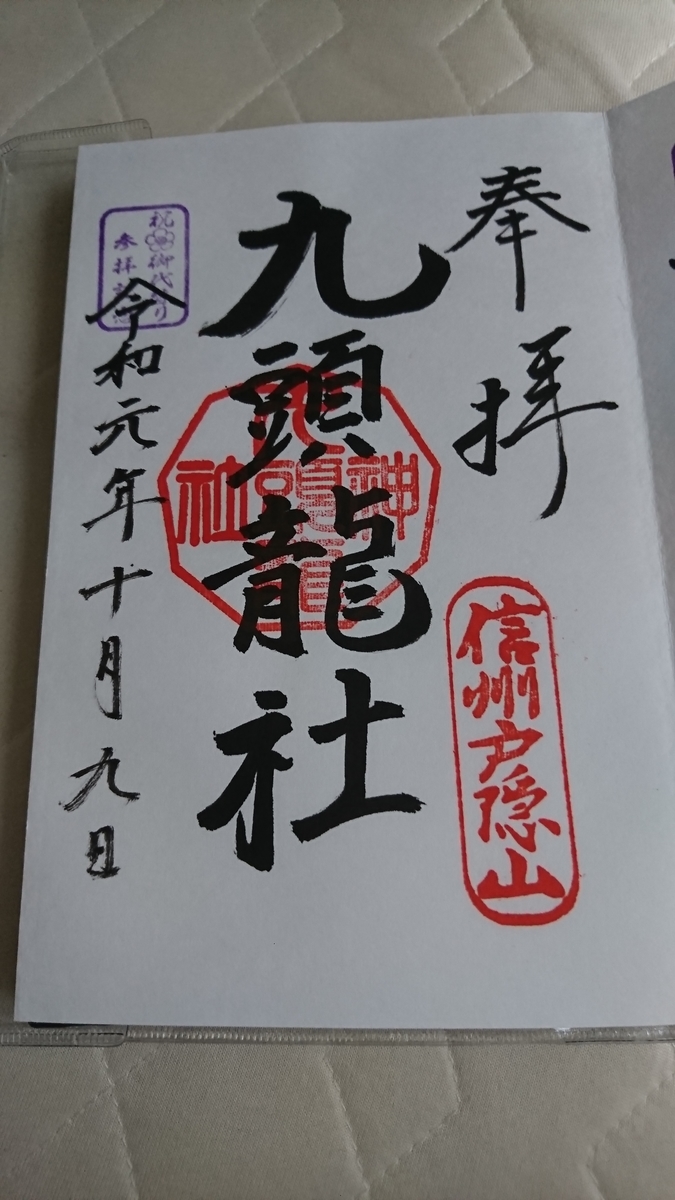 奉拝
信州戸隠山
九頭龍社
神九頭龍社
祝御代替り
参拝記念
令和元年十月九日